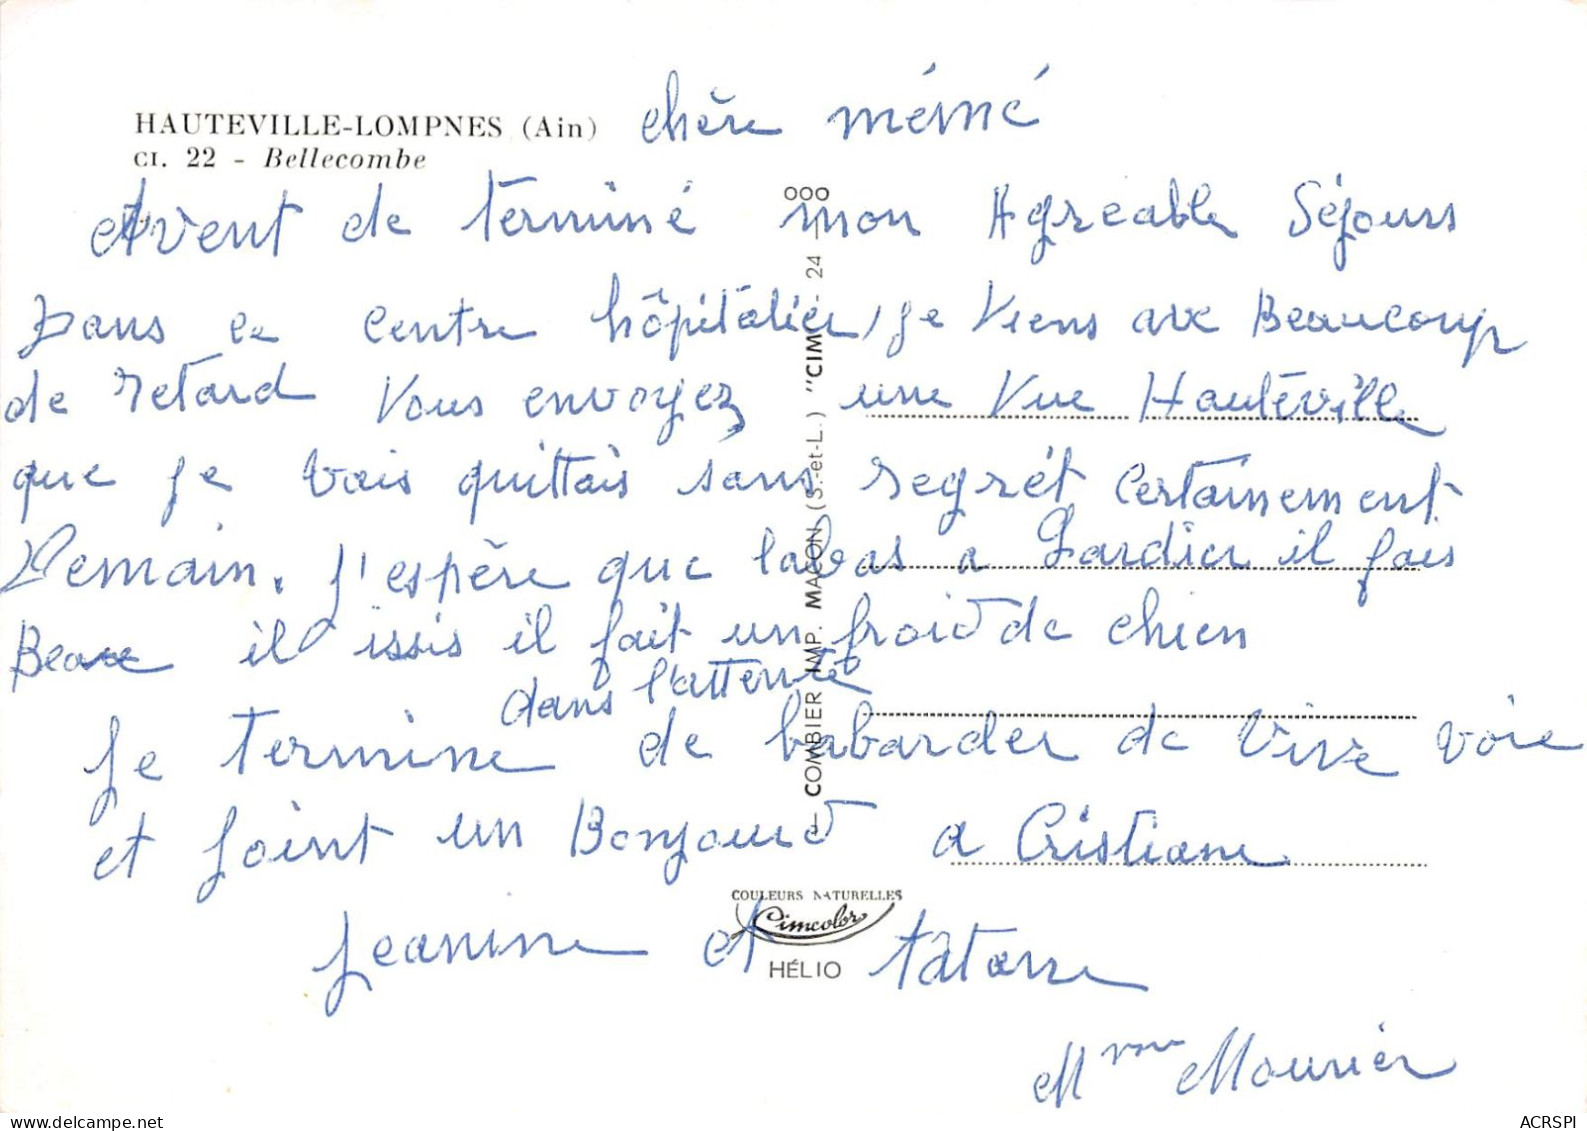 HAUTEVILLE-LOMPNES (Ain)
CI. 22 - Bellecombe
chère mémé
Avent de terminé mon Agreable Séjours
Dans ce centre hôpitalier, je Viens avec Beaucoup
de retard Vous envoyez une Vue Hautéville
que je vais quittais sans regrét certainement
Demain. J'espère que labas a Lardier il fais
Beau issis il fait un froid de chien
dans l'attente
Je termine de babarder de Vive voie
et joint un Bonjour a Cristiane
Jeanine et tâtane
Mme Mourier
COMBIER IMP. MACON (S.-et-L.) "CIM" 24
COULEURS NATURELLES
Cimcolor
HÉLIO
ACRSPI